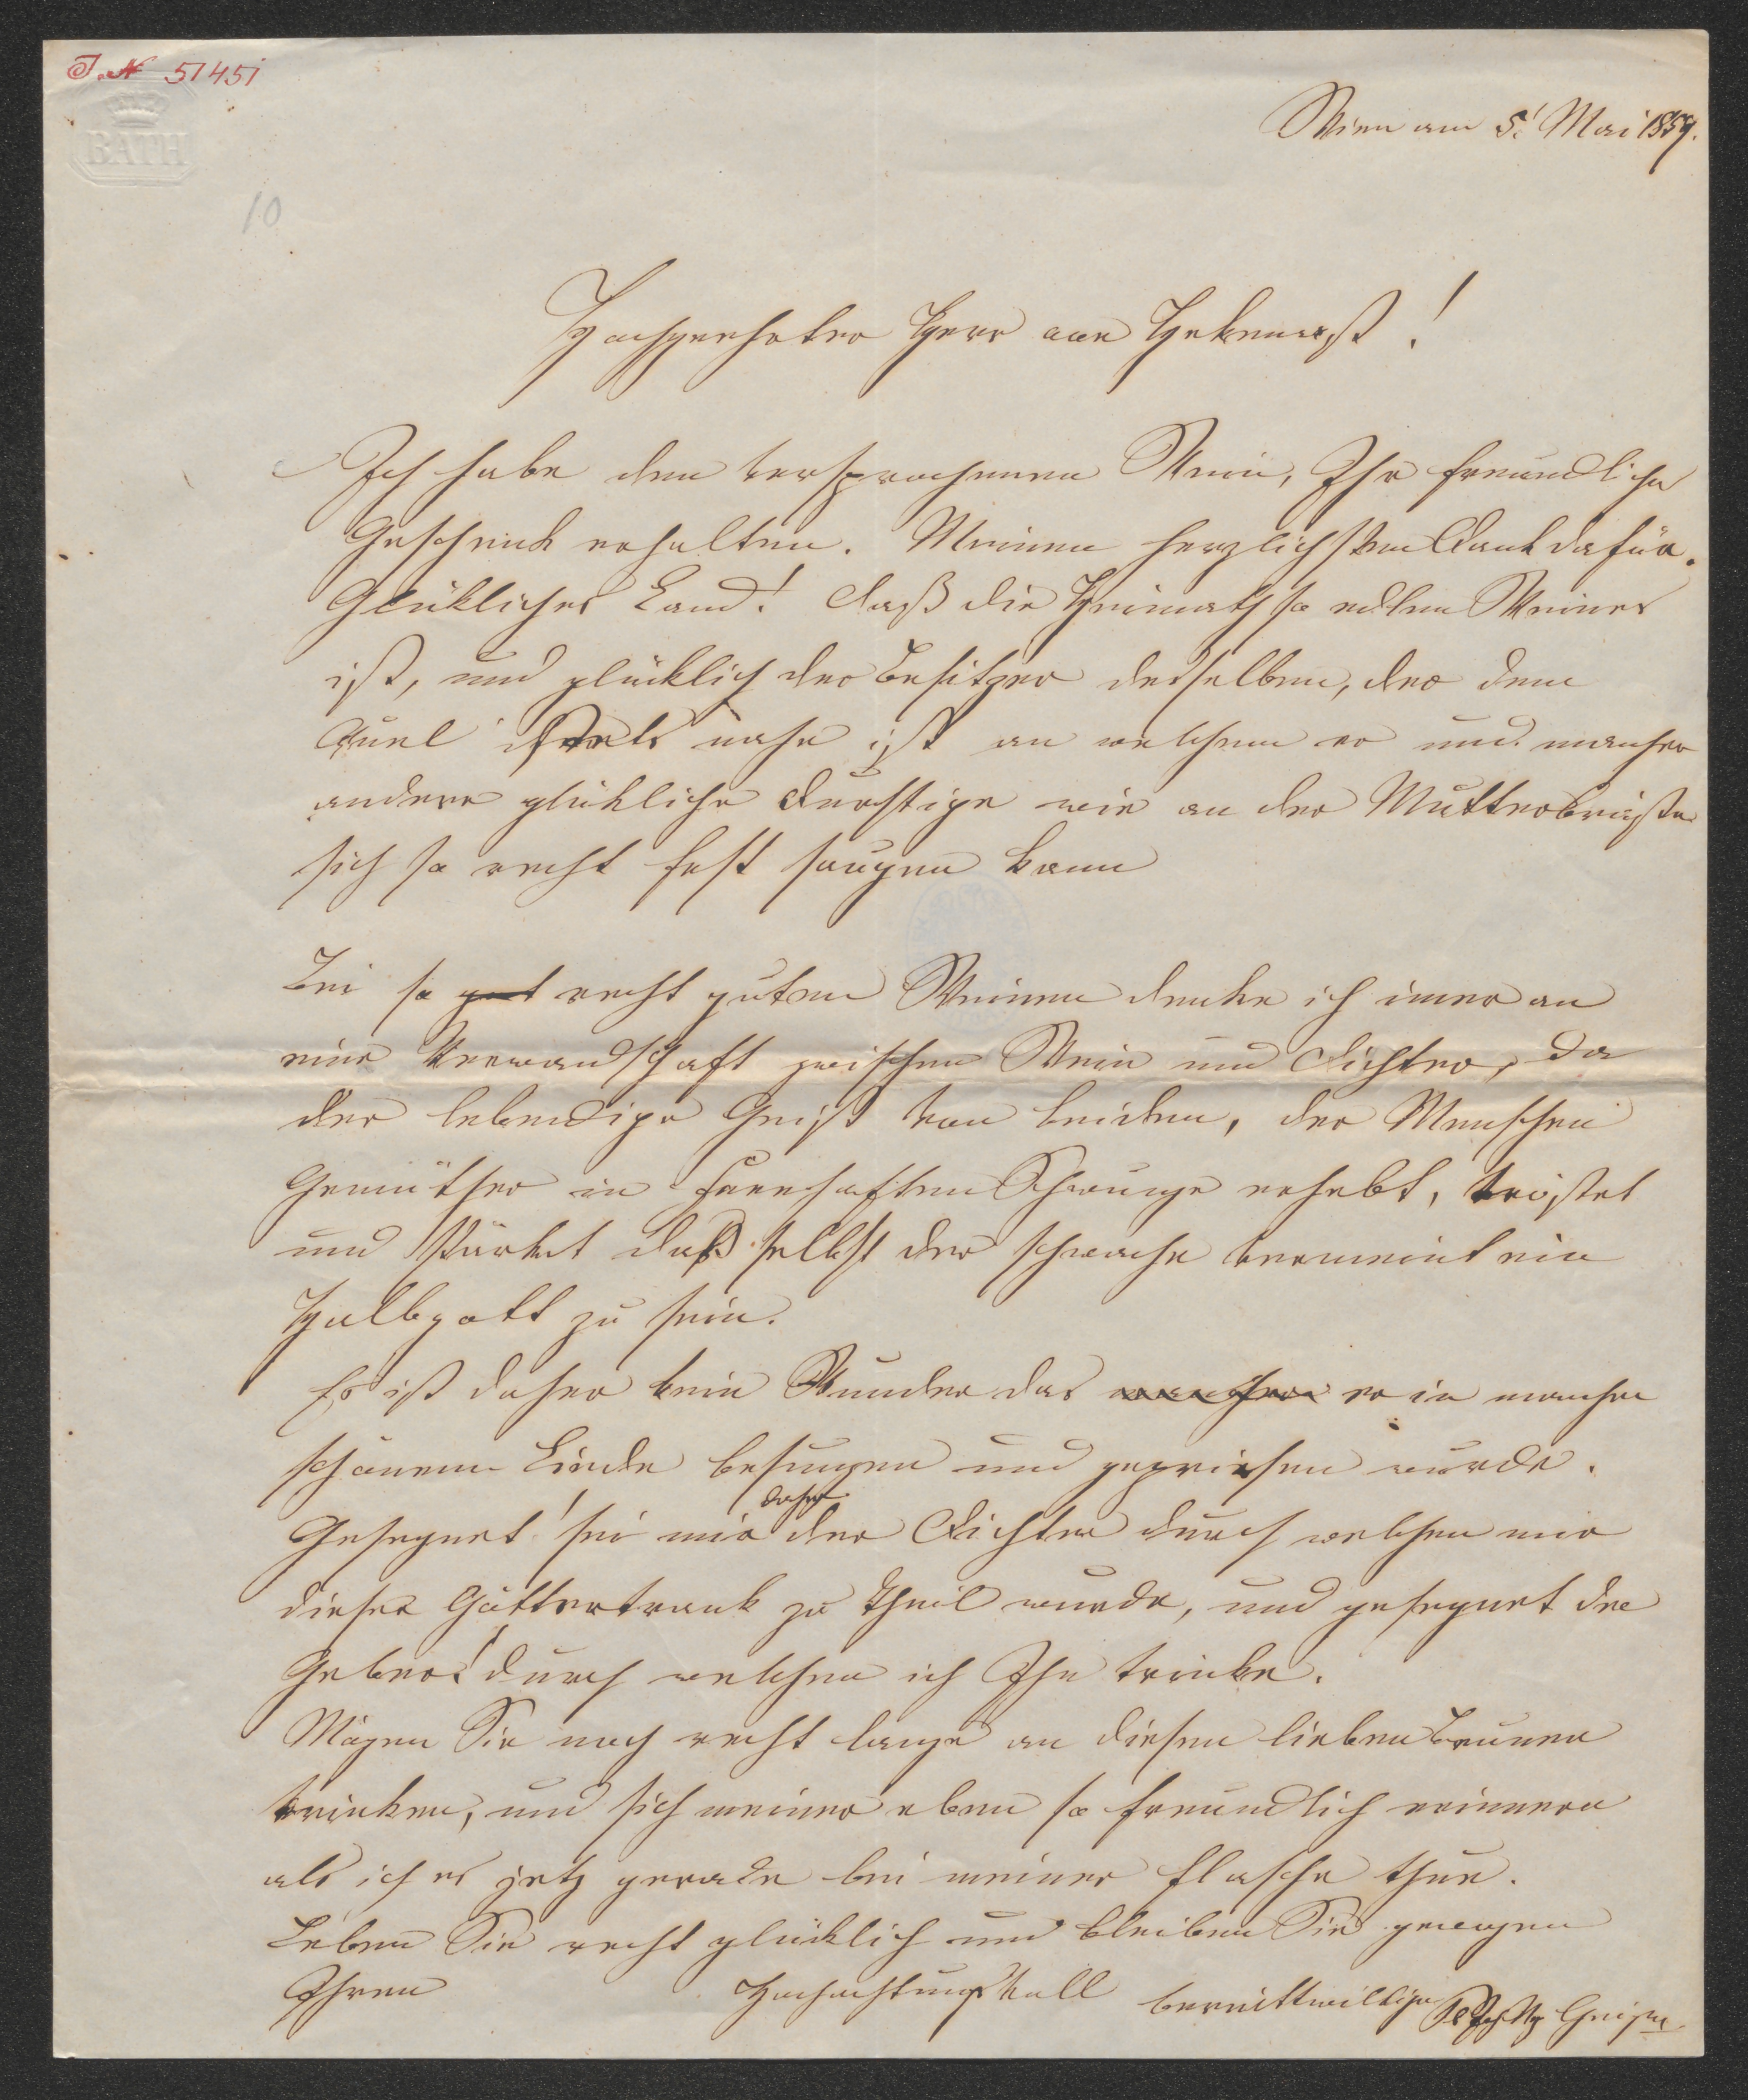 J. N 51451
BATH
Wien am 5t Mai 1859.
10
Hochgeehrter Herr von Hekenast!
Ich habe den versprochenen Wein, Ihr freundliches
Geschenk erhalten. Meinen herzlichsten Dank dafür.
Glükliches Land! daß die Heimath so edlen Weines
ist, und glücklich der Besitzer desselben, der dem
Quel stets nahe ist an welchem er und mancher
andere glükliche durstige wie an der Mutterbrüste
sich so recht fest saugen kann
Bei so gut recht guten Weinen denke ich imer an
eine Verwandschaft zwischen Wein und Dichter, da
der lebendige Geist von beiden, der Menschen
Gemüther in Schwunge erhebt, tröstet
und stärket daß selbst der schwache vermeint ein
Halbgott zu sein.
Es ist daher kein Wunder das mancher er in manchen
schönem Liede besungen und gepriesen wurde.
daher
Gesegnet! sei mir der Dichter durch welchen mir
dieser Göttertrank zu Theil wurde, und gesegnet der
Geber! durch welchen ich Ihn trinke.
Mögen Sie noch recht lange an diesen lieben Brunen
trinken, und sich meiner eben so freundlich erinnern
als ich es jetz gerade bei meiner Flasche thue.
Leben Sie recht glücklich und bleiben Sie gewogen
Ihren Hochachtungsvoll bereittwillige Geiger